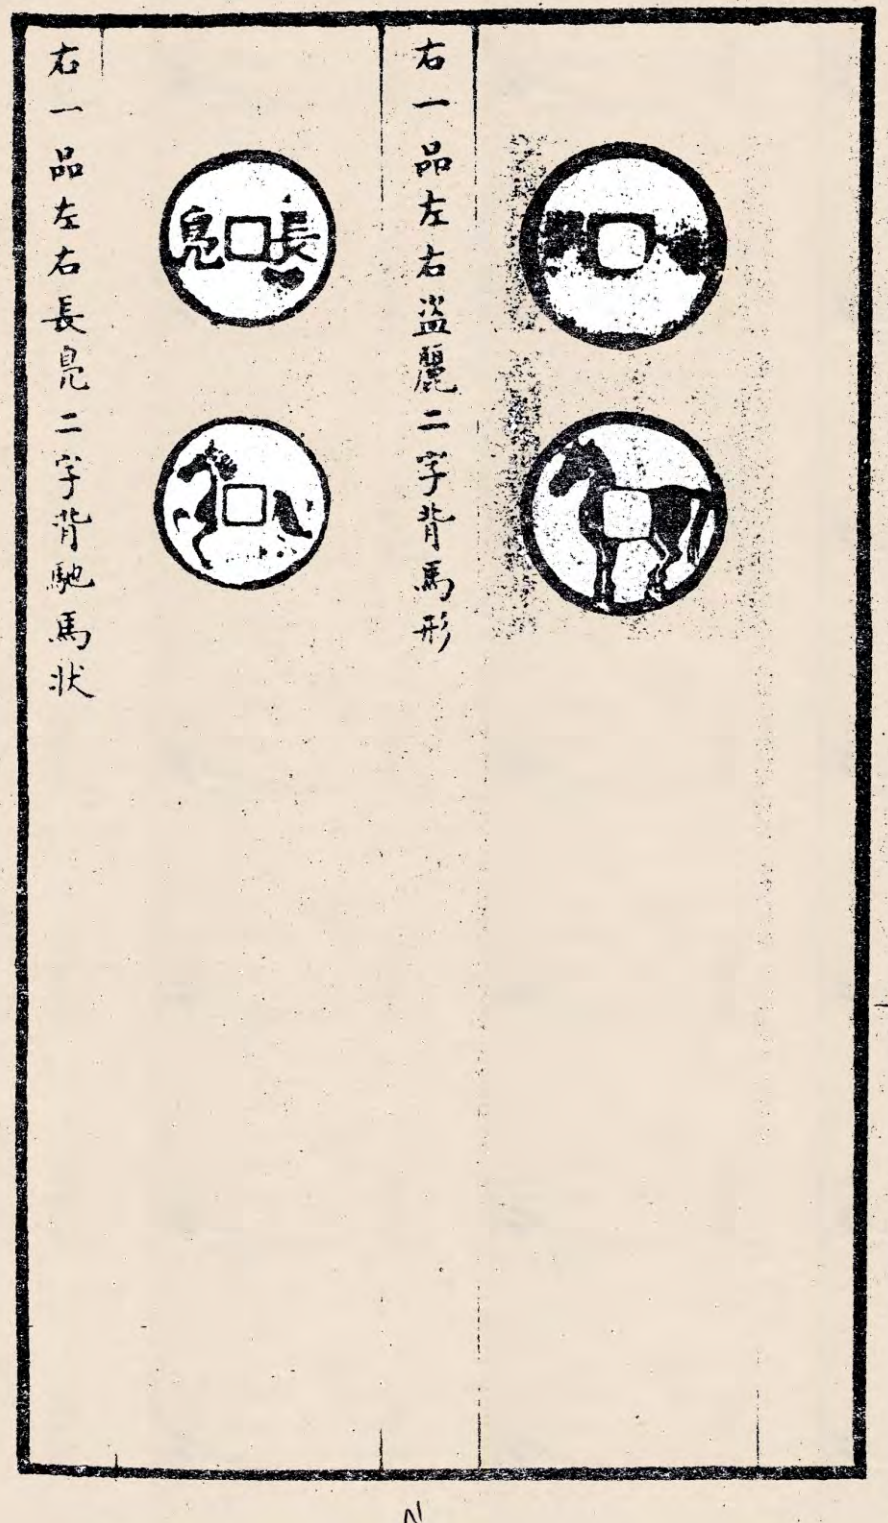 右一品左右盗麗二字背馬形
長凫
右一品左右長凫二字背馳馬状